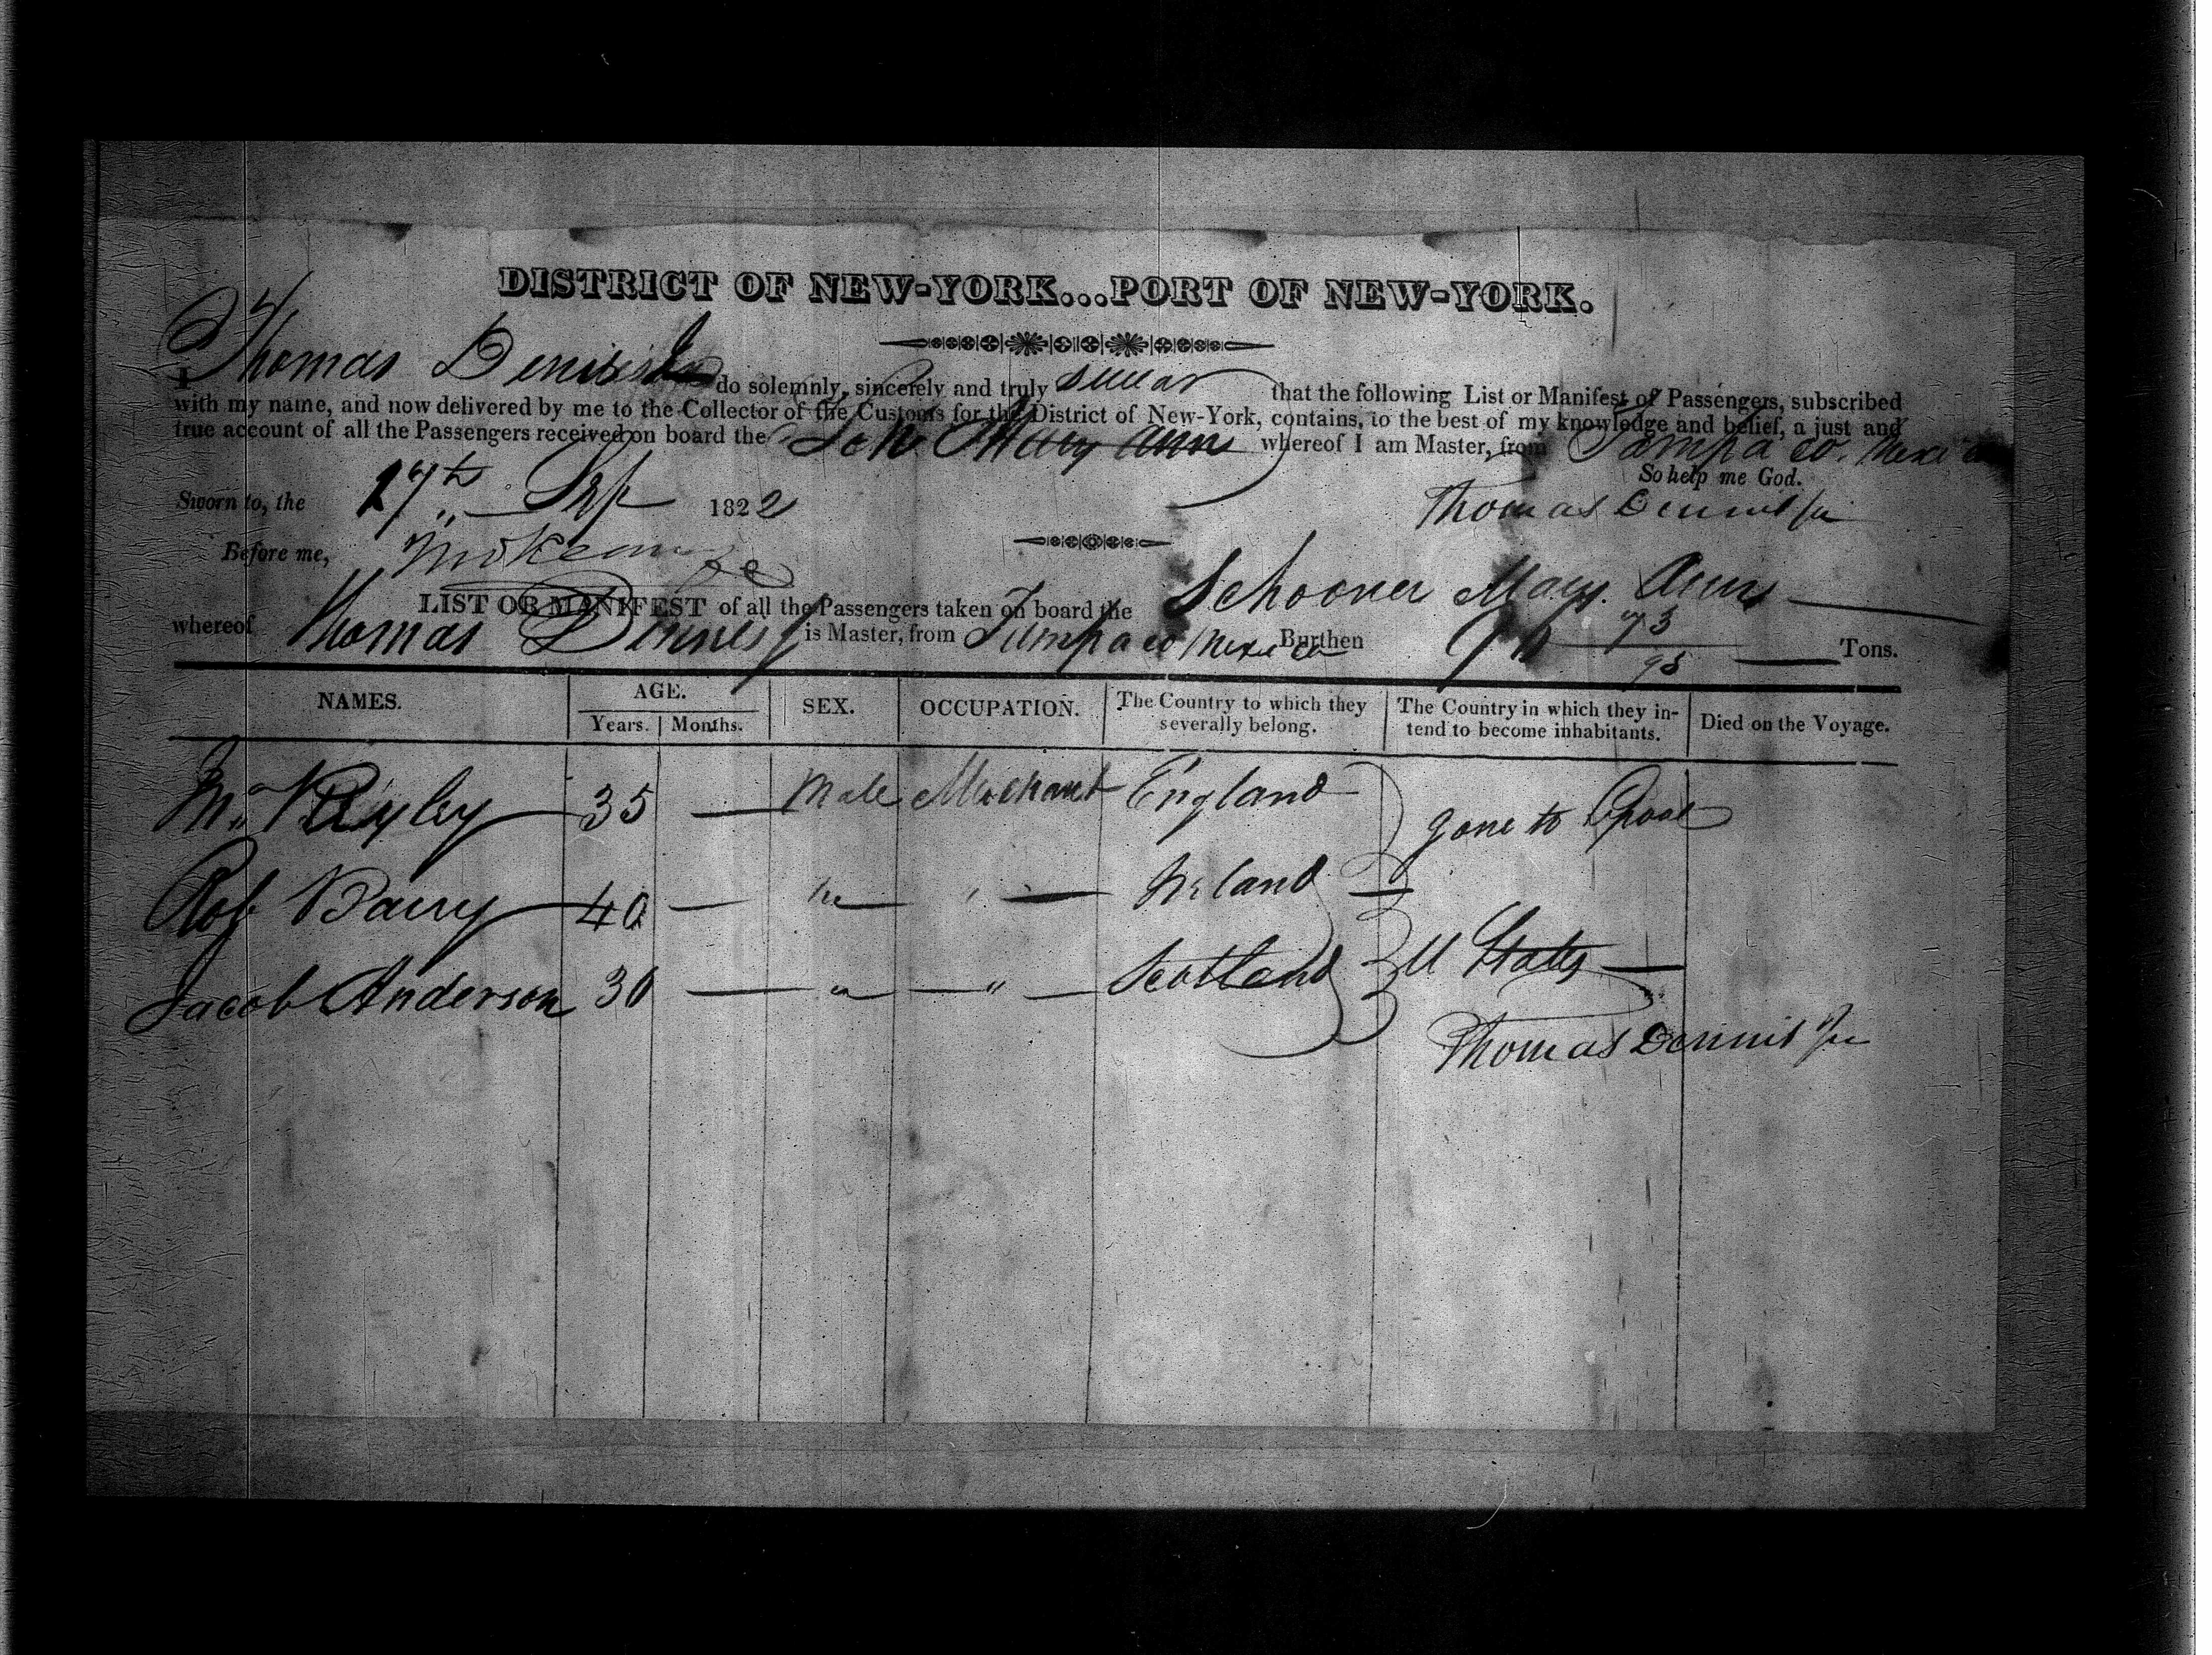 DISTRICT OF NEW-YORK...PORT OF NEW-YORK.
I Thomas Dennis Jr do solemnly, sincerely and truly swear that the following List or Manifest of Passengers, subscribed
with my name, and now delivered by me to the Collector of the Customs for the District of New-York, contains, to the best of my knowledge and belief, a just and
true account of all the Passengers received on board the Schr Mary Ann whereof I am Master, from Tampaco. Mexico
So help me God.
Sworn to, the 17th Sep 1822
Thomas Dennis Jr
Before me,
LIST OR MANIFEST of all the Passengers taken on board the Schooner Mary Ann
whereof Thomas Dennis Jr is Master, from Tampaco Mexico Burthen 73/95 Tons.
NAMES. AGE. SEX. OCCUPATION. The Country to which they severally belong. The Country in which they intend to become inhabitants. Died on the Voyage.
Years. Months.
Mr Ryley 35 — Male Merchant England gone to Lpool
Rob Barry 40 — " — Ireland —
Jacob Anderson 30 — " — " — Scotland U States —
Thomas Dennis Jr